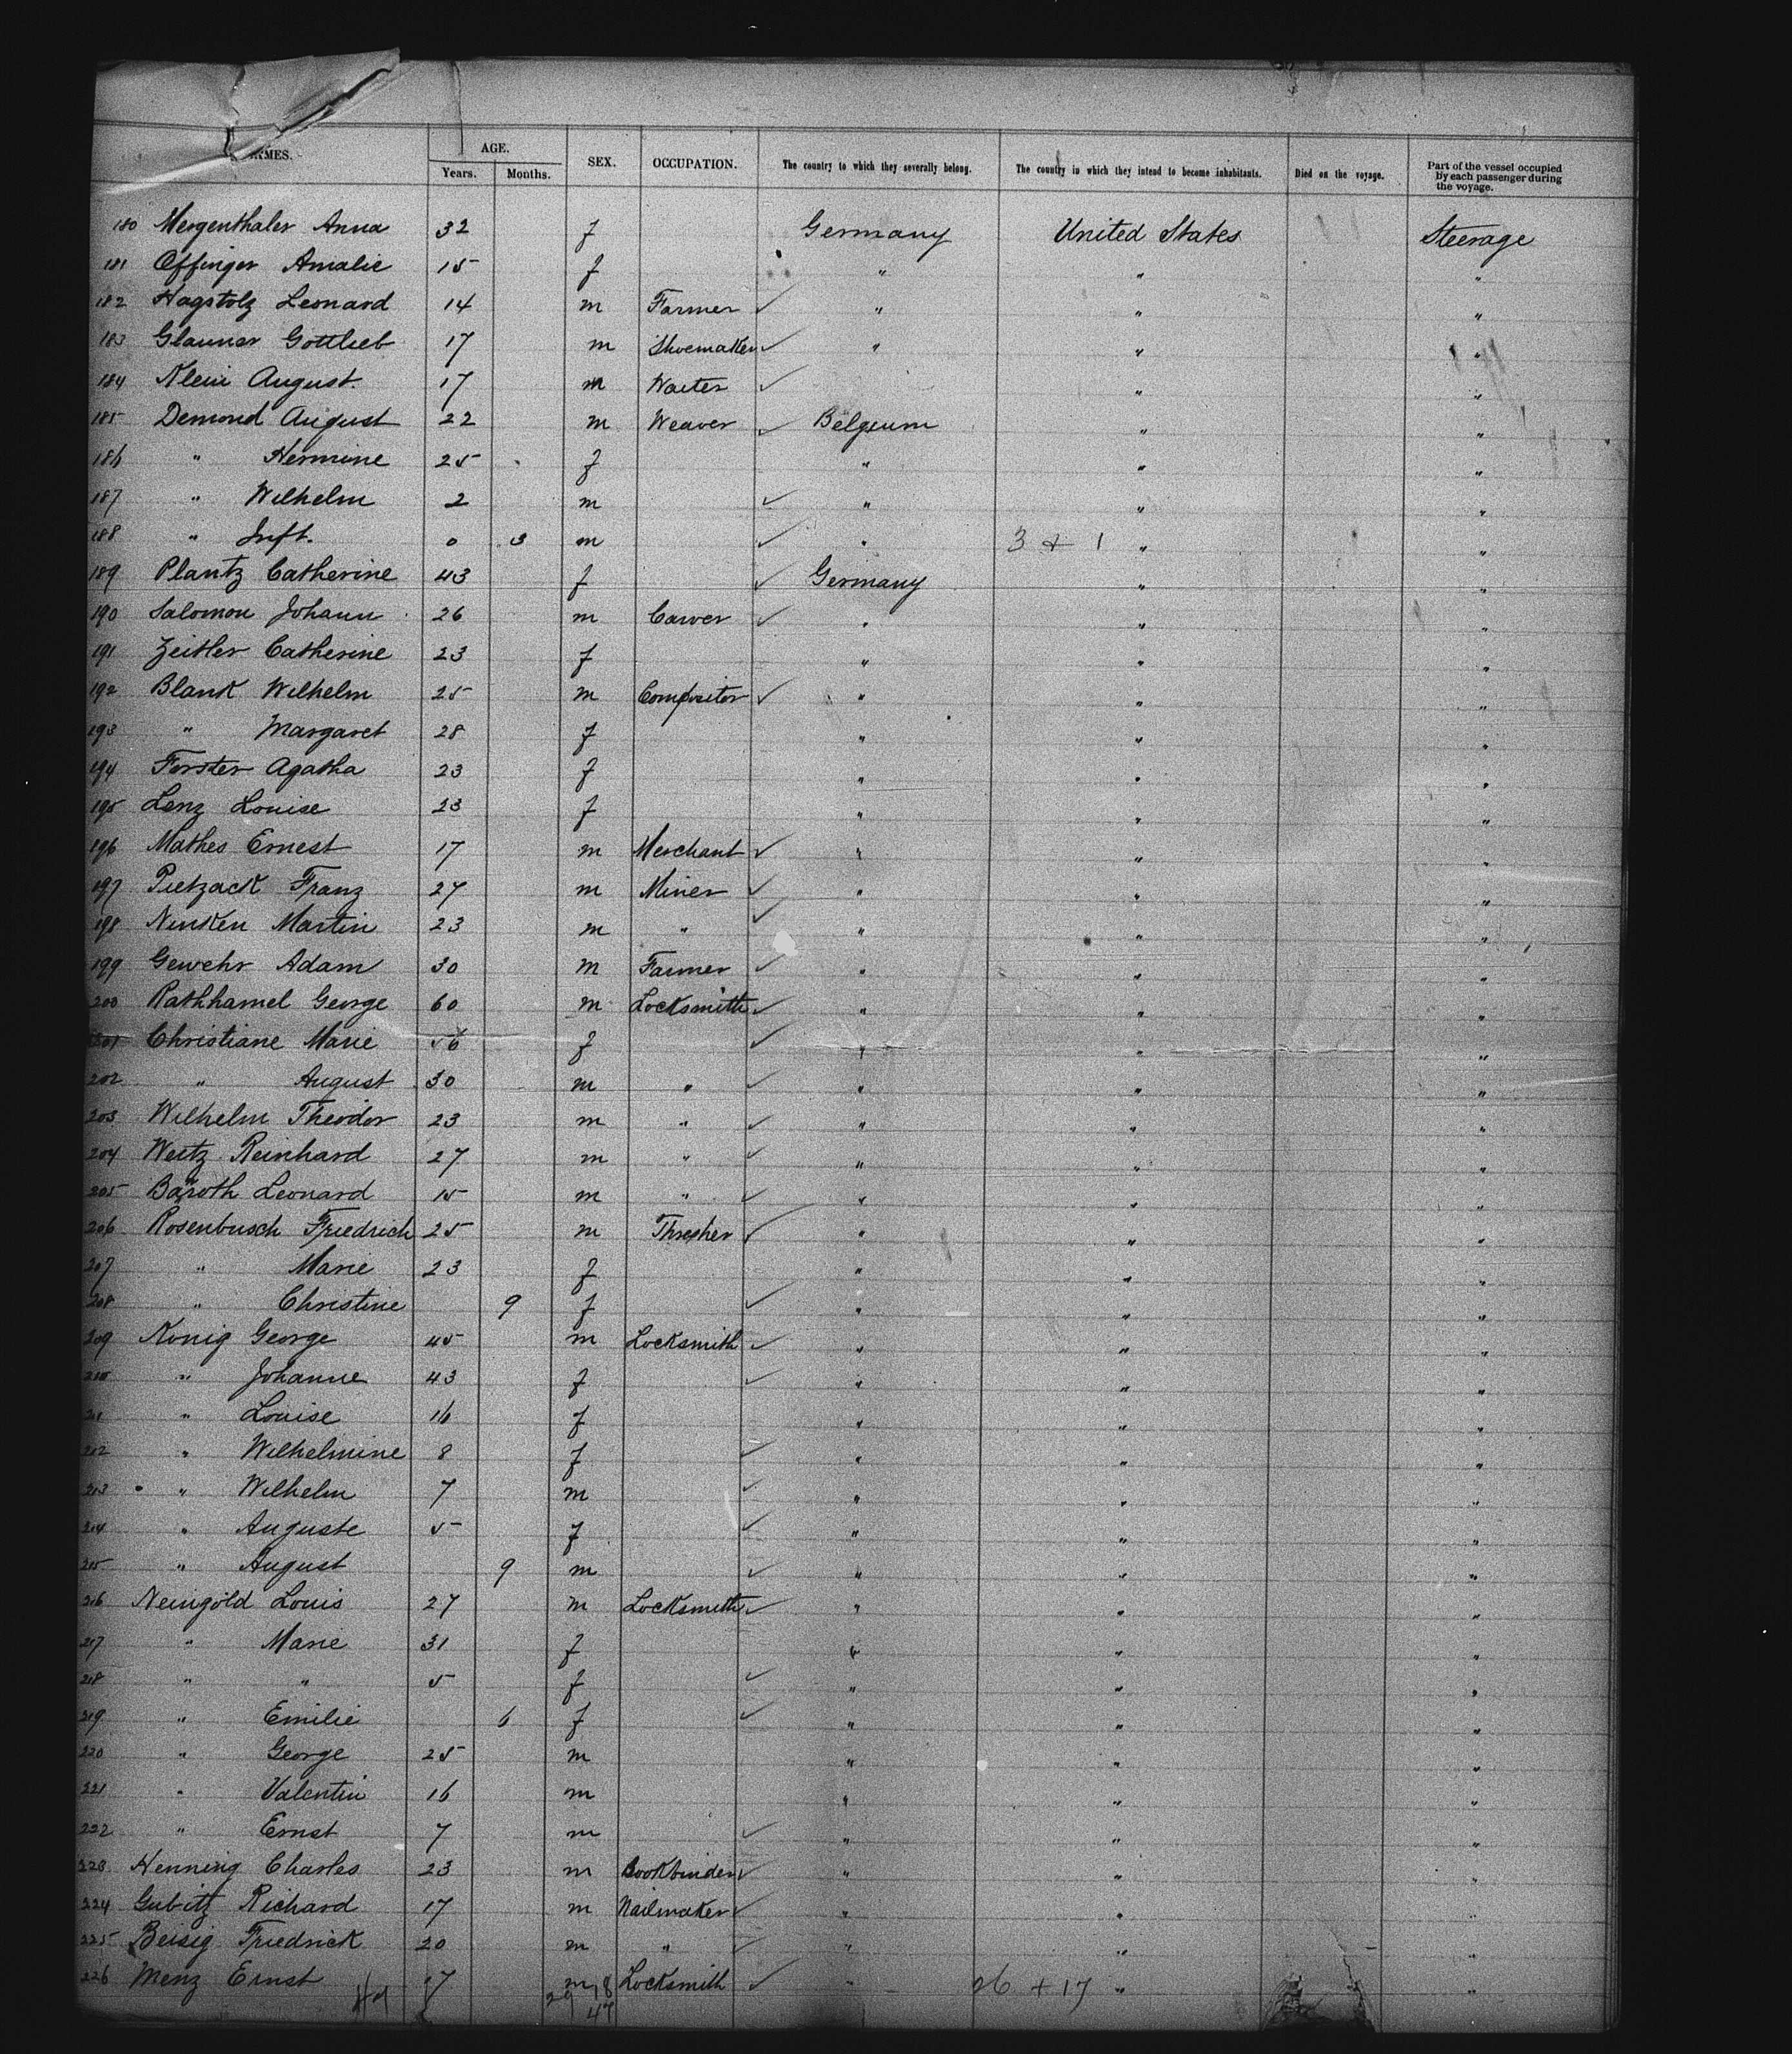 NAMES. AGE. SEX. OCCUPATION. The country to which they severally belong. The country in which they intend to become inhabitants. Died on the voyage. Part of the vessel occupied by each passenger during the voyage.
Years. Months.
180 Mergenthaler Anna 32 f Germany United States Steerage
181 Offinger Amalie 15 f " " "
182 Hagstolz Leonard 14 m Farmer ✓ " " "
183 Glauner Gottlieb 17 m Shoemaker ✓ " " "
184 Klein August. 17 m Waiter ✓ " "
185 Demond August 22 m Weaver ✓ Belgium " "
186 " Hermine 25 f " " "
187 " Wilhelm 2 m ✓ " " "
188 " Inft. 0 3 m ✓ " 3 + 1 " "
189 Plantz Catherine 43 f ✓ Germany " "
190 Salomon Johann 26 m Carver ✓ " " "
191 Zeitler Catherine 23 f " " "
192 Blank Wilhelm 25 m Compositor ✓ " " "
193 " Margaret 28 f " " "
194 Forster Agatha 23 f " " "
195 Lenz Louise 23 f " " "
196 Mathes Ernest 17 m Merchant ✓ " " "
197 Pietzack Franz 27 m Miner ✓ " " "
198 Ninken Martin 23 m " ✓ " " "
199 Gewehr Adam 30 m Farmer ✓ " " "
200 Rathhamel George 60 m Locksmith ✓ " " "
201 Christiane Marie 56 f ✓ " " "
202 " August 30 m " ✓ " " "
203 Wilhelm Theodor 23 m " ✓ " " "
204 Weitz Reinhard 27 m " ✓ " " "
205 Baroth Leonard 15 m " ✓ " " "
206 Rosenbusch Friedrich 25 m Thresher ✓ " " "
207 " Marie 23 f " " "
208 " Christine 9 f ✓ " " "
209 Konig George 45 m Locksmith ✓ " " "
210 " Johanne 43 f ✓ " " "
211 " Louise 16 f " " "
212 " Wilhelmine 8 f ✓ " " "
213 " Wilhelm 7 m ✓ " " "
214 " Auguste 5 f ✓ " " "
215 " August 9 m ✓ " " "
216 Neingöld Louis 27 m Locksmith ✓ " " "
217 " Marie 31 f " " "
218 " " 5 f ✓ " " "
219 " Emilie 6 f ✓ " " "
220 " George 25 m " " "
221 " Valentin 16 m " " "
222 " Ernst 7 m ✓ " " "
223 Henning Charles 23 m Bookbinder ✓ " " "
224 Gubitz Richard 17 m Nailmaker ✓ " " "
225 Beisig Friedrick 20 m " ✓ " " "
226 Menz Ernst 17 m Locksmith ✓ " 26 + 17 " "
29 18
47